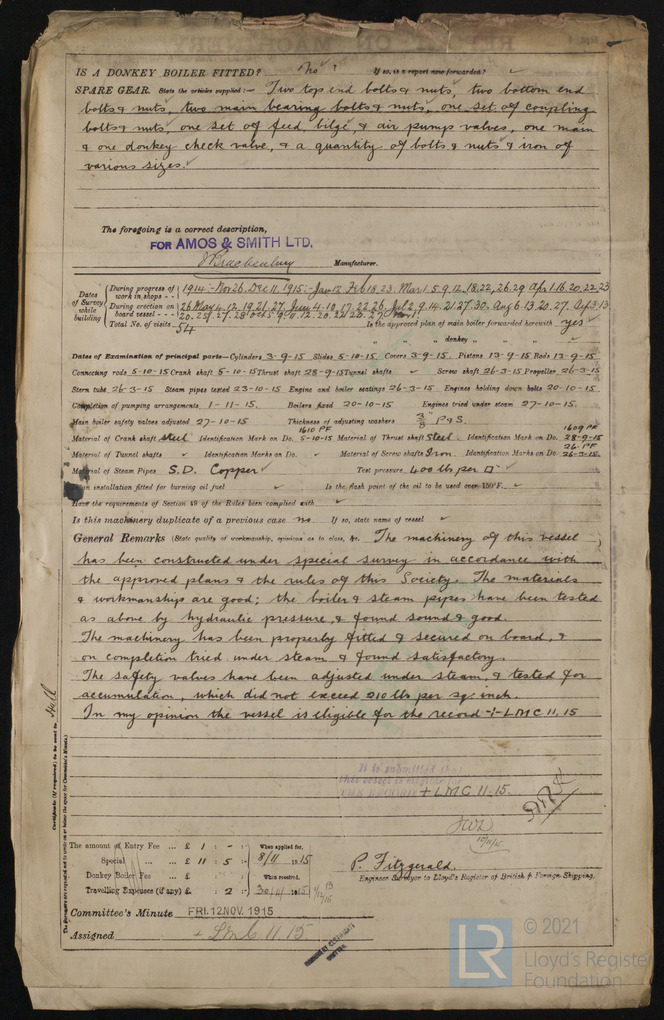 IS A DONKEY BOILER FITTED? "No" If so, is a report now forwarded?
SPARE GEAR. State the articles supplied:— Two top end bolts & nuts, two bottom end
bolts & nuts, two main bearing bolts & nuts, one set of coupling
bolts & nuts, one set of feed, bilge & air pump valves, one main
& one donkey check valve, & a quantity of bolts & nuts & iron of
various sizes.
The foregoing is a correct description,
FOR AMOS & SMITH LTD.
Brackenbury Manufacturer.
Dates of Survey while building
During progress of work in shops - - 1914:- Nov 26. Dec 11. 1915:- Jan 12 Feb 18. 23. Mar 1. 5. 9. 12. 18. 22. 26. 29 Apr 1. 16. 20. 22. 23
During erection on board vessel - - - 26 May 4. 12. 19. 21. 27. Jun 4. 10. 17. 22. 26. Jul 2. 9. 14. 21. 27. 30. Aug 6. 13. 20. 27. Sep 3. 13.
Total No. of visits 54 Is the approved plan of main boiler forwarded herewith yes
" " donkey " " "
Dates of Examination of principal parts—Cylinders 3-9-15 Slides 5-10-15 Covers 3-9-15. Pistons 13-9-15 Rods 13-9-15
Connecting rods 5-10-15 Crank shaft 5-10-15 Thrust shaft 28-9-15 Tunnel shafts Screw shaft 26-3-15 Propeller 26-3-15
Stern tube 26-3-15 Steam pipes tested 23-10-15 Engine and boiler seatings 26-3-15. Engines holding down bolts 20-10-15
Completion of pumping arrangements 1-11-15. Boilers fixed 20-10-15 Engines tried under steam 27-10-15.
Main boiler safety valves adjusted 27-10-15 Thickness of adjusting washers 3/8" P & S.
Material of Crank shaft Steel Identification Mark on Do. 1610 PF 5-10-15 Material of Thrust shaft Steel. Identification Mark on Do. 1609 PF 28-9-15
Material of Tunnel shafts Identification Marks on Do. Material of Screw shafts Iron. Identification Marks on Do. 26 PF 26-3-15.
Material of Steam Pipes S.D. Copper Test pressure 400 lbs per □"
Is an installation fitted for burning oil fuel Is the flash point of the oil to be used over 150°F.
Have the requirements of Section 49 of the Rules been complied with
Is this machinery duplicate of a previous case no. If so, state name of vessel
General Remarks (State quality of workmanship, opinions as to class, &c. The machinery of this vessel
has been constructed under special survey in accordance with
the approved plans & the rules of this Society. The materials
& workmanship are good; the boiler & steam pipes have been tested
as above by hydraulic pressure, & found sound & good.
The machinery has been properly fitted & secured on board, &
on completion tried under steam & found satisfactory.
The safety valves have been adjusted under steam, & tested for
accumulation, which did not exceed 210 lbs per sq: inch.
In my opinion the vessel is eligible for the record + LMC 11.15
Hull
Certificate (if required) to be sent to
(The Surveyors are requested not to write on or below the space for Committee's Minute.)
It is submitted that
this vessel is eligible for
THE RECORD + LMC 11-15.
The amount of Entry Fee ... £ 1 : - : When applied for,
Special ... ... £ 11 : 5 : 8/11 1915
Donkey Boiler Fee ... £ : : When received,
Travelling Expenses (if any) £ : 2 : 30/11/1915
P. Fitzgerald.
Engineer Surveyor to Lloyd's Register of British & Foreign Shipping.
Committee's Minute FRI. 12 NOV. 1915
Assigned + LMC 11 15
© 2021
Lloyd's Register
Foundation
LR